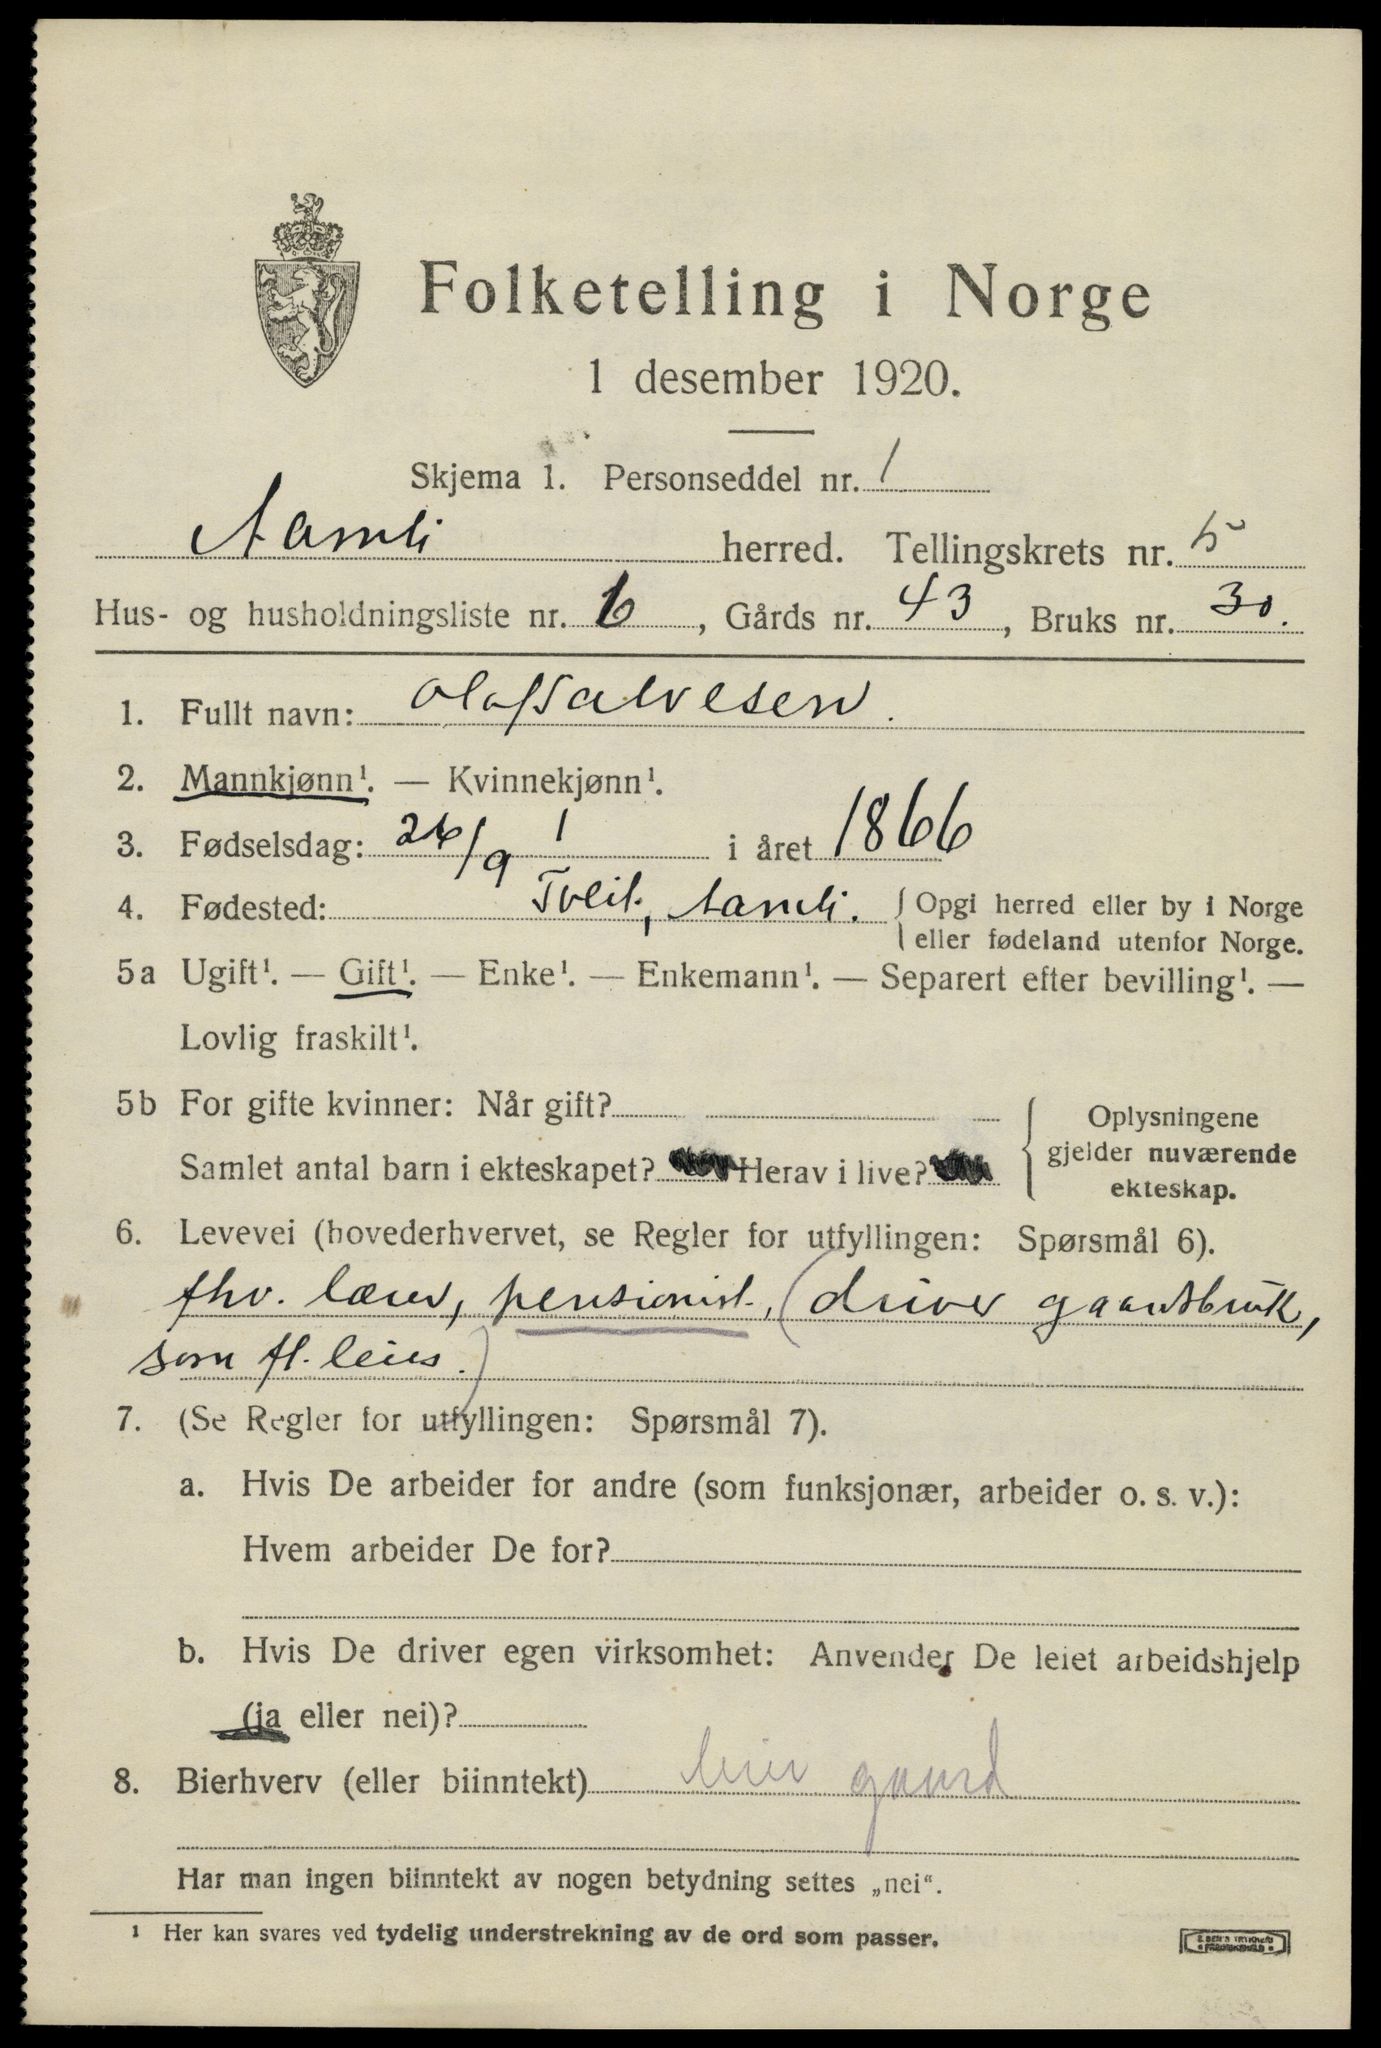 Folketelling i Norge
1 desember 1920.
Skjema 1. Personseddel nr. 1
Aamli herred. Tellingskrets nr. 5
Hus- og husholdningsliste nr. 6, Gårds nr. 43, Bruks nr. 30.
1. Fullt navn: Olaf Salvesen.
2. Mannkjønn¹. — Kvinnekjønn¹.
3. Fødselsdag: 26/9 1 i året 1866
4. Fødested: Tveit, Aamli. { Opgi herred eller by i Norge
eller fødeland utenfor Norge.
5a Ugift¹. — Gift¹. — Enke¹. — Enkemann¹. — Separert efter bevilling¹. —
Lovlig fraskilt¹.
5b For gifte kvinner: Når gift?
Samlet antal barn i ekteskapet? Herav i live?
Oplysningene
gjelder nuværende
ekteskap.
6. Levevei (hovederhvervet, se Regler for utfyllingen: Spørsmål 6).
fhv. lærer, pensionist, (driver gaardsbruk,
som fl. leies.)
7. (Se Regler for utfyllingen: Spørsmål 7).
a. Hvis De arbeider for andre (som funksjonær, arbeider o. s. v.):
Hvem arbeider De for?
b. Hvis De driver egen virksomhet: Anvender De leiet arbeidshjelp
(ja eller nei)?
8. Bierhverv (eller biinntekt) leier gaard
Har man ingen biinntekt av nogen betydning settes „nei“.
¹ Her kan svares ved tydelig understrekning av de ord som passer.